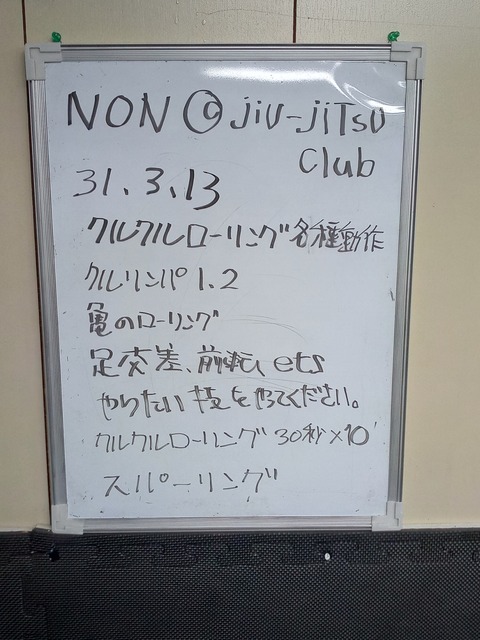 NON © jiu-jiTsu
Club
31.3.13
クルクルローリング各種動作
クルリンパ1.2
亀のローリング
足交差、前転、ets
やりたい技をやってください。
クルクルローリング30秒×10
スパーリング